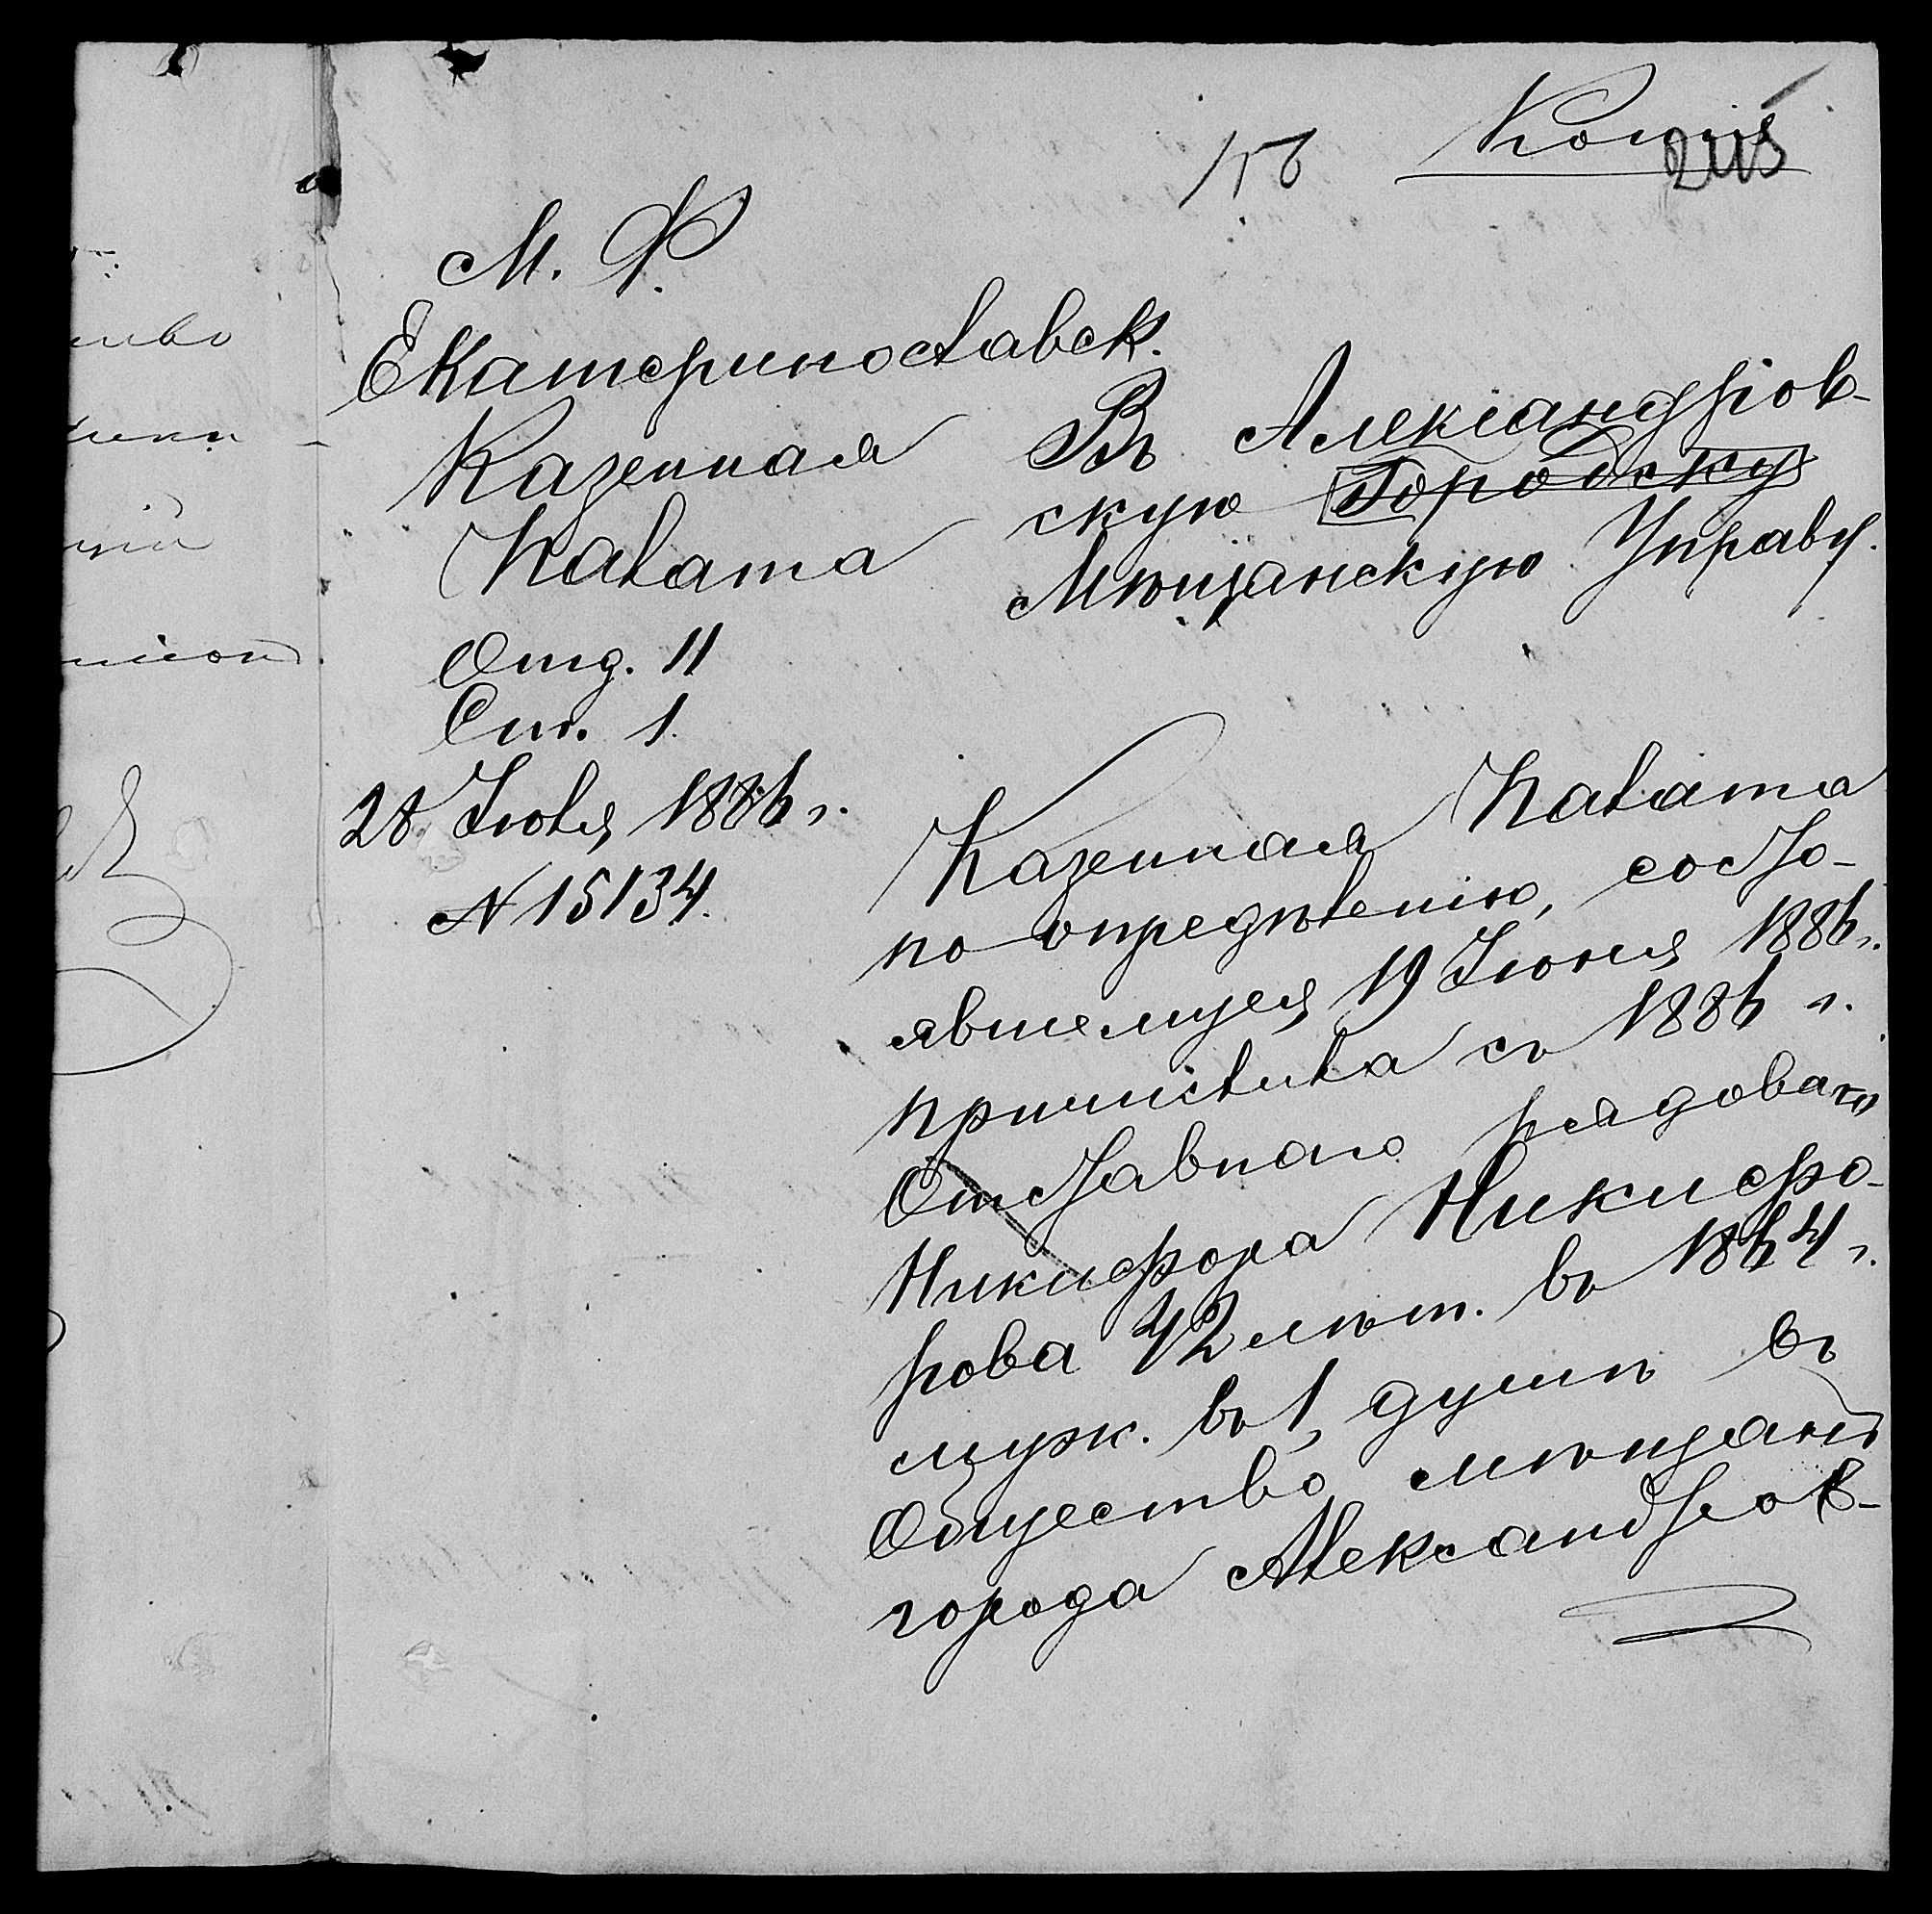 Копія
М. Ф.
Екатеринославск.
Казенная
Палата
Отд. II
Ст. 1.
28 Іюля 1886 г.
N 15134.
Въ Александров-
скую Городскую
Мѣщанскую Управу.
Казенная Палата
по опредѣленію, состо-
явшемуся 19 Іюня 1886 г.
причислила съ 1886 г.
Отставного рядоваго
Никифора Никифо-
рова 42 лѣт. въ 1864 г.
муж. въ 1, душѣ въ
Общество мѣщанъ
города Александров-